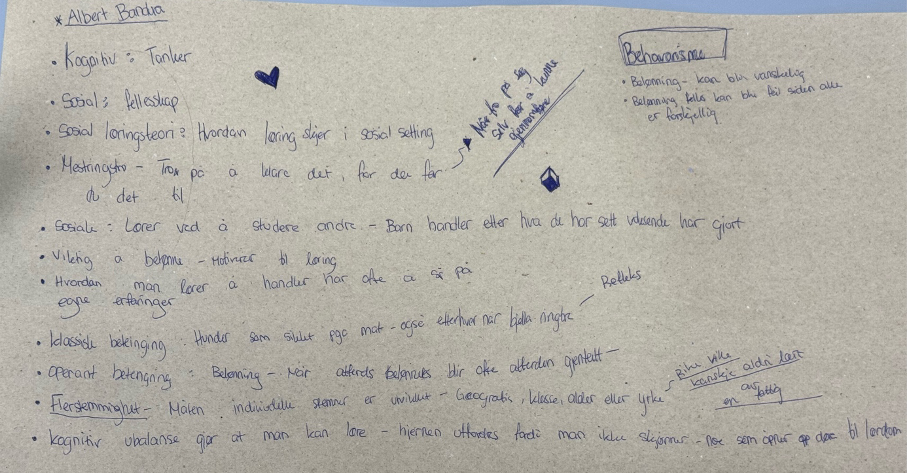 * Albert Bandura
• Kognitiv : Tanker
• Sosial : fellesskap
• Sosial læringsteori : Hvordan læring skjer i sosial setting
• Mestringstro - Troa på å klare det, før den får
du det til
Når to på seg
selv for å kunne
gjennomføre
• Sosiale : Lærer ved å studere andre. - Barn handler etter hva de har sett voksende har gjort
• Viktig å belønne - Motiverer til læring
• Hvordan man lærer å handler har ofte å si på
egne erfaringer
• klassisk betinging : Hunder som siklet pga mat - også etterhver når bjella ringte
Refleks
• operant betenging : Belønning - Når atferds belønnes blir ofte atferden gjentatt -
• Flerstemmighet - Måten individuelle stemmer er utviklet - Geografis, klasse, alder eller yrke
Rike ville
kanskje aldri lært
av
en fattig
• kognitiv ubalanse gjør at man kan lære - hjernen utfordres fordi man ikke skjønner - noe som åpner opp døre til lærdom
Behavorisme
• Belønning - kan bli vanskelig
• Belønning felle kan bli feil siden alle
er forskjellig